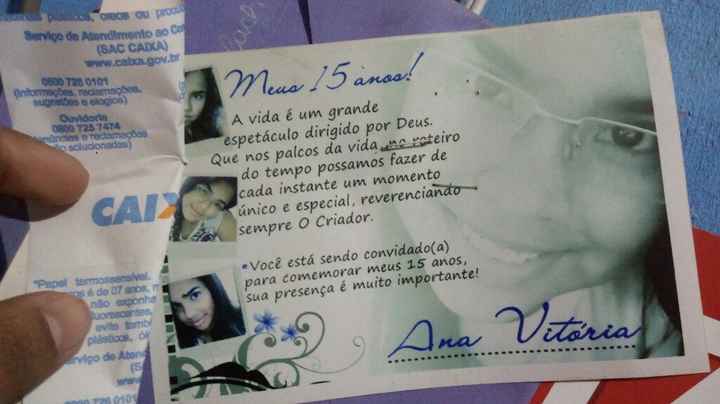 Serviço de Atendimento ao
(SAC CAIXA)
www.caixa.gov.br
0800 726 0101
(Informações, reclamações,
sugestões e elogios)
Ouvidoria
0800 725 7474
e reclamações
não solucionadas)
CAIX
"Papel termossensível.
é de 07 anos,
não exponha
evite
plásticos,
Serviço de
www
0800 726 0101
Meus 15 anos!
A vida é um grande
espetáculo dirigido por Deus.
Que nos palcos da vida, no roteiro
do tempo possamos fazer de
cada instante um momento
único e especial, reverenciando
sempre O Criador.
Você está sendo convidado(a)
para comemorar meus 15 anos,
sua presença é muito importante!
Ana Vitória